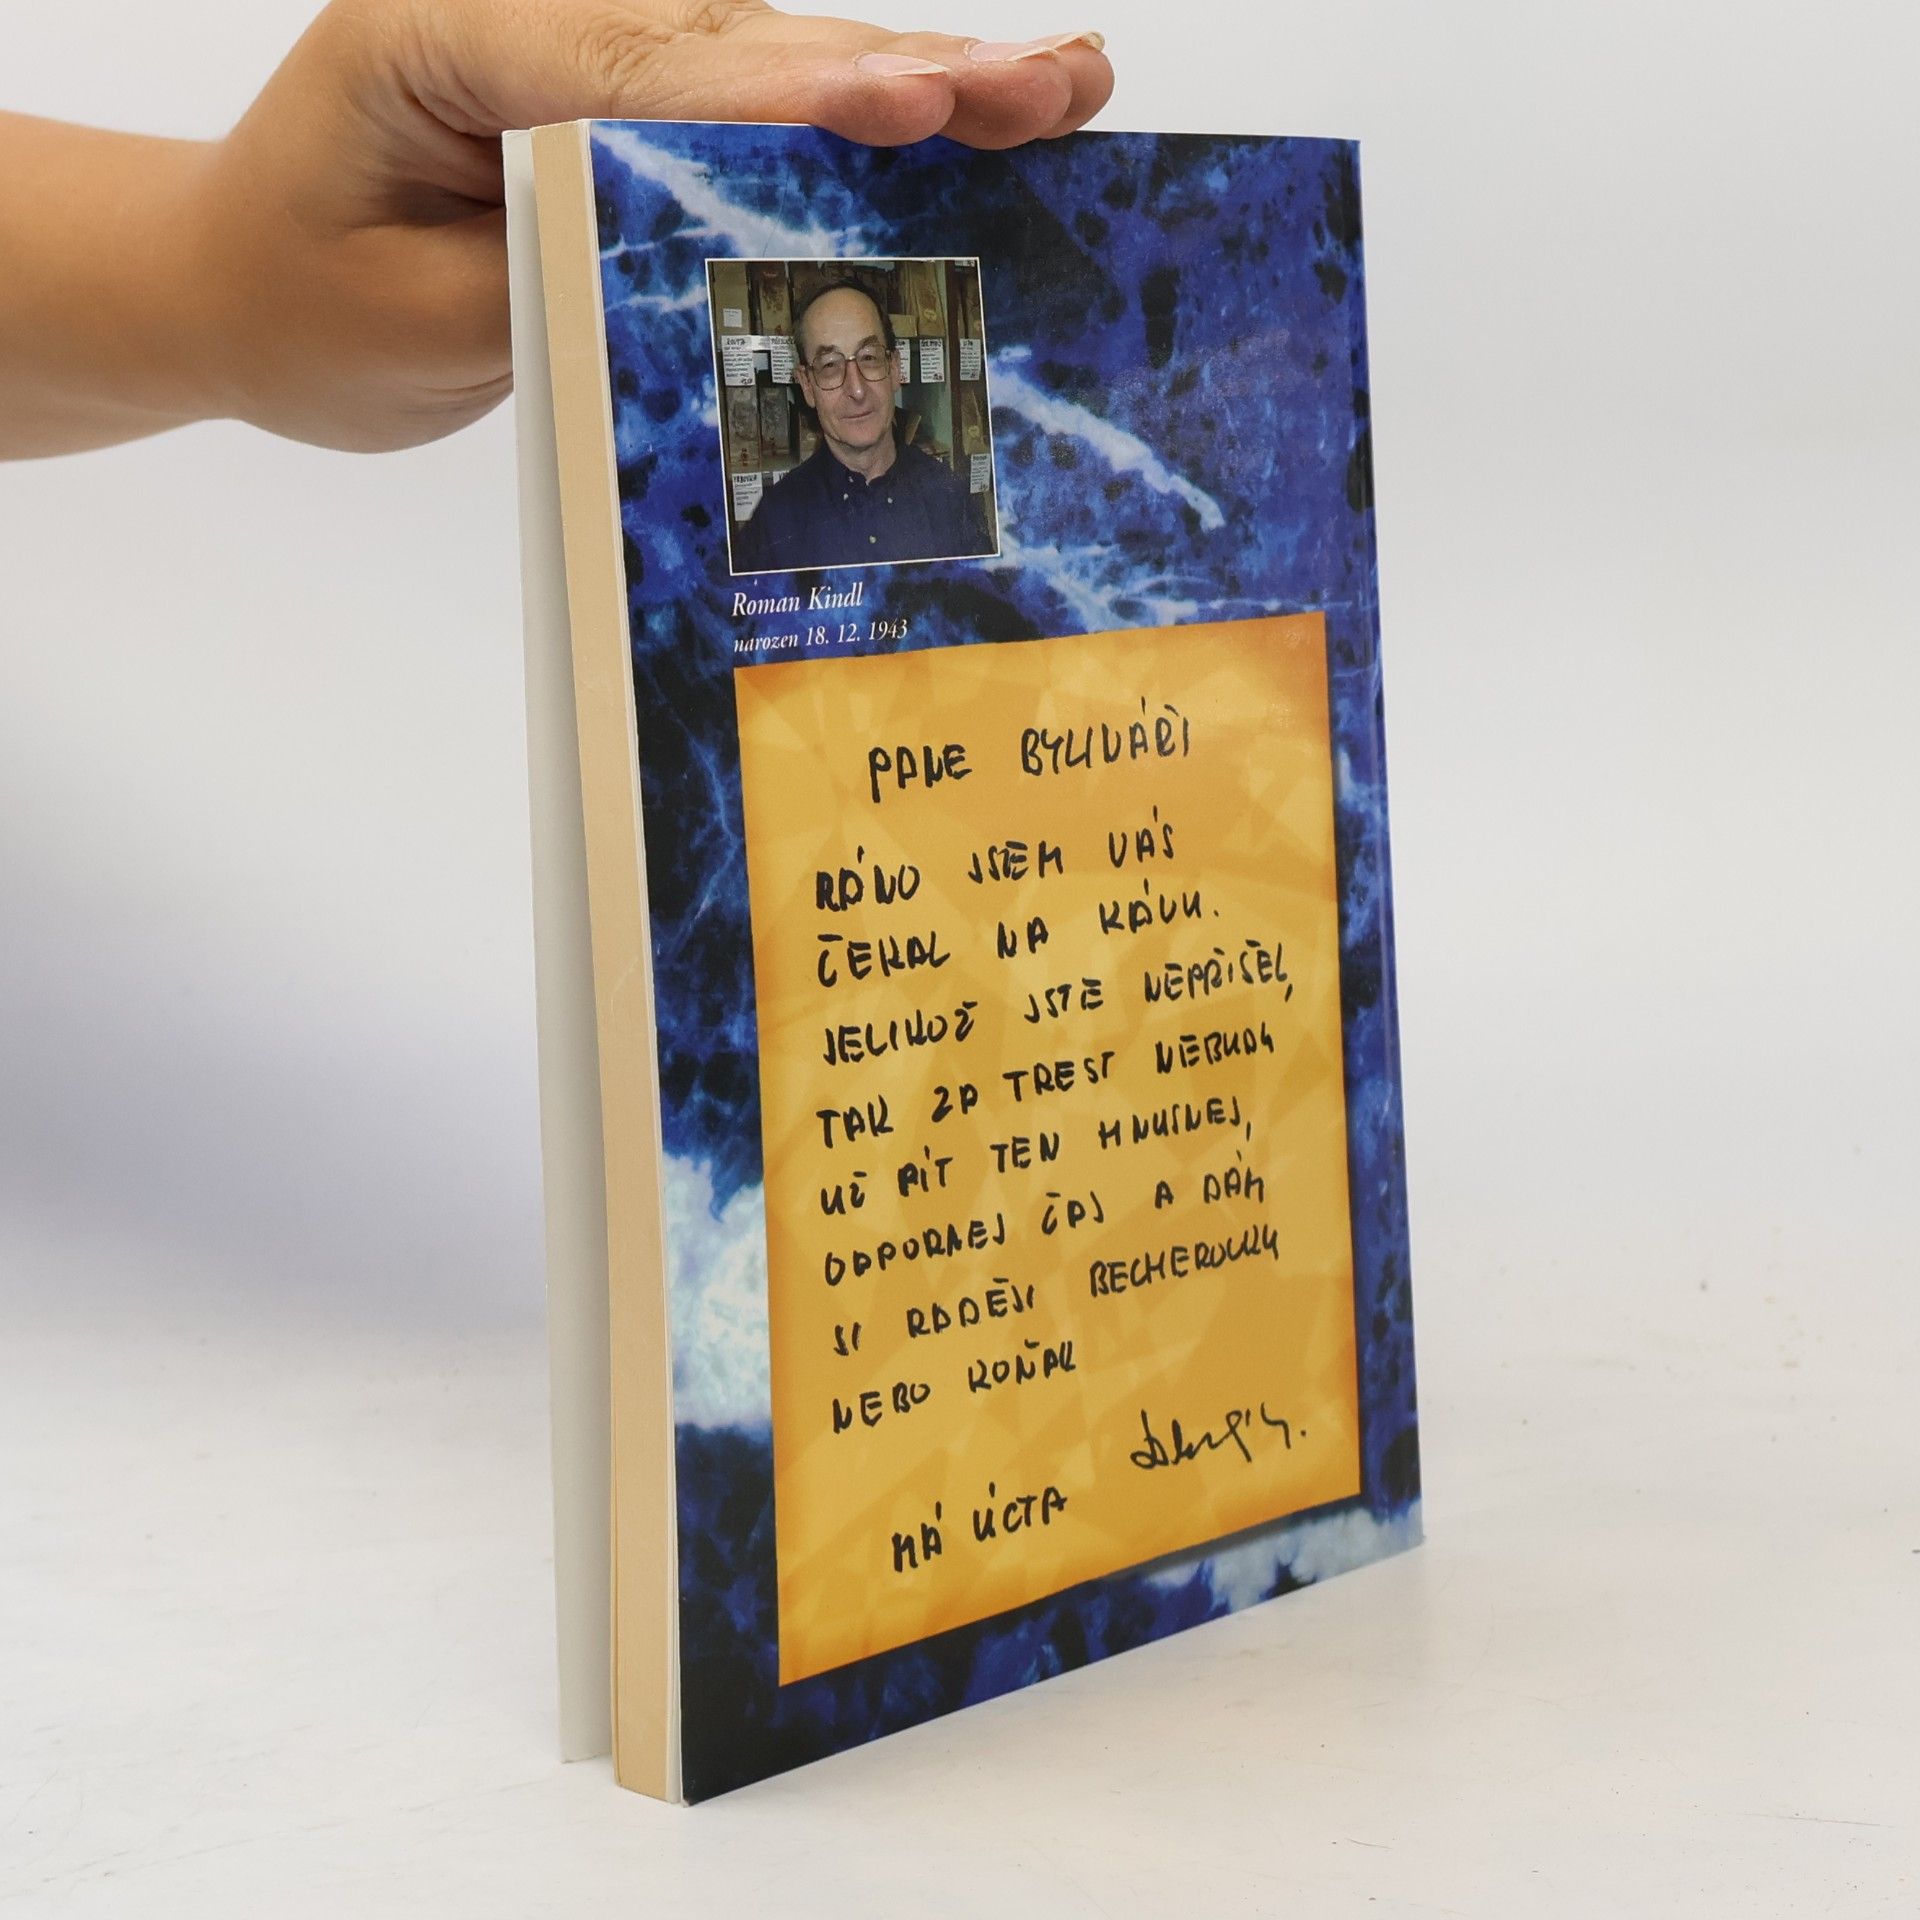 Roman Kindl
narozen 18. 12. 1943
PANE BYLINÁŘI
RÁNO JSEM VÁS
ČEKAL NA KÁVU.
JELIKOŽ JSTE NEPŘIŠEL,
TAK ZA TREST NEBUDU
UŽ PÍT TEN HNUSNEJ,
ODPORNEJ ČAJ A DÁM
SI RADĚJI BECHEROVKU
NEBO KOŇAK
MÁ ÚCTA